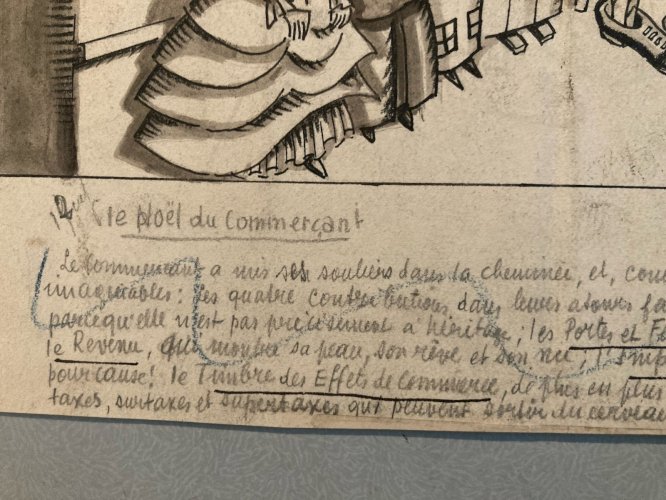 le Noël du Commerçant
Le Commerçant a mis ses souliers dans la cheminée, et,
inimaginables: les quatre contributions dans leurs atours
parcequ'elle n'est pas précisément à hériter; les Portes et
le Revenu, qui montre sa peau, son rêve et son
pour cause! le Timbre des Effets de Commerce, de plus en plus
taxes, surtaxes et supertaxes qui peuvent sortir du cerveau